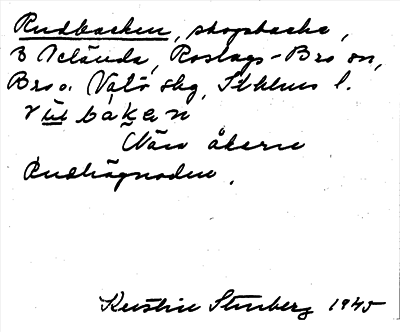 Rudbacken, skogsbacke,
3 Eklända, Roslags-Bro sn,
Bro o. Vätö skg, Sthlms l.
Nära åkern
Rudhägnaden.
Kerstin Stenberg 1945